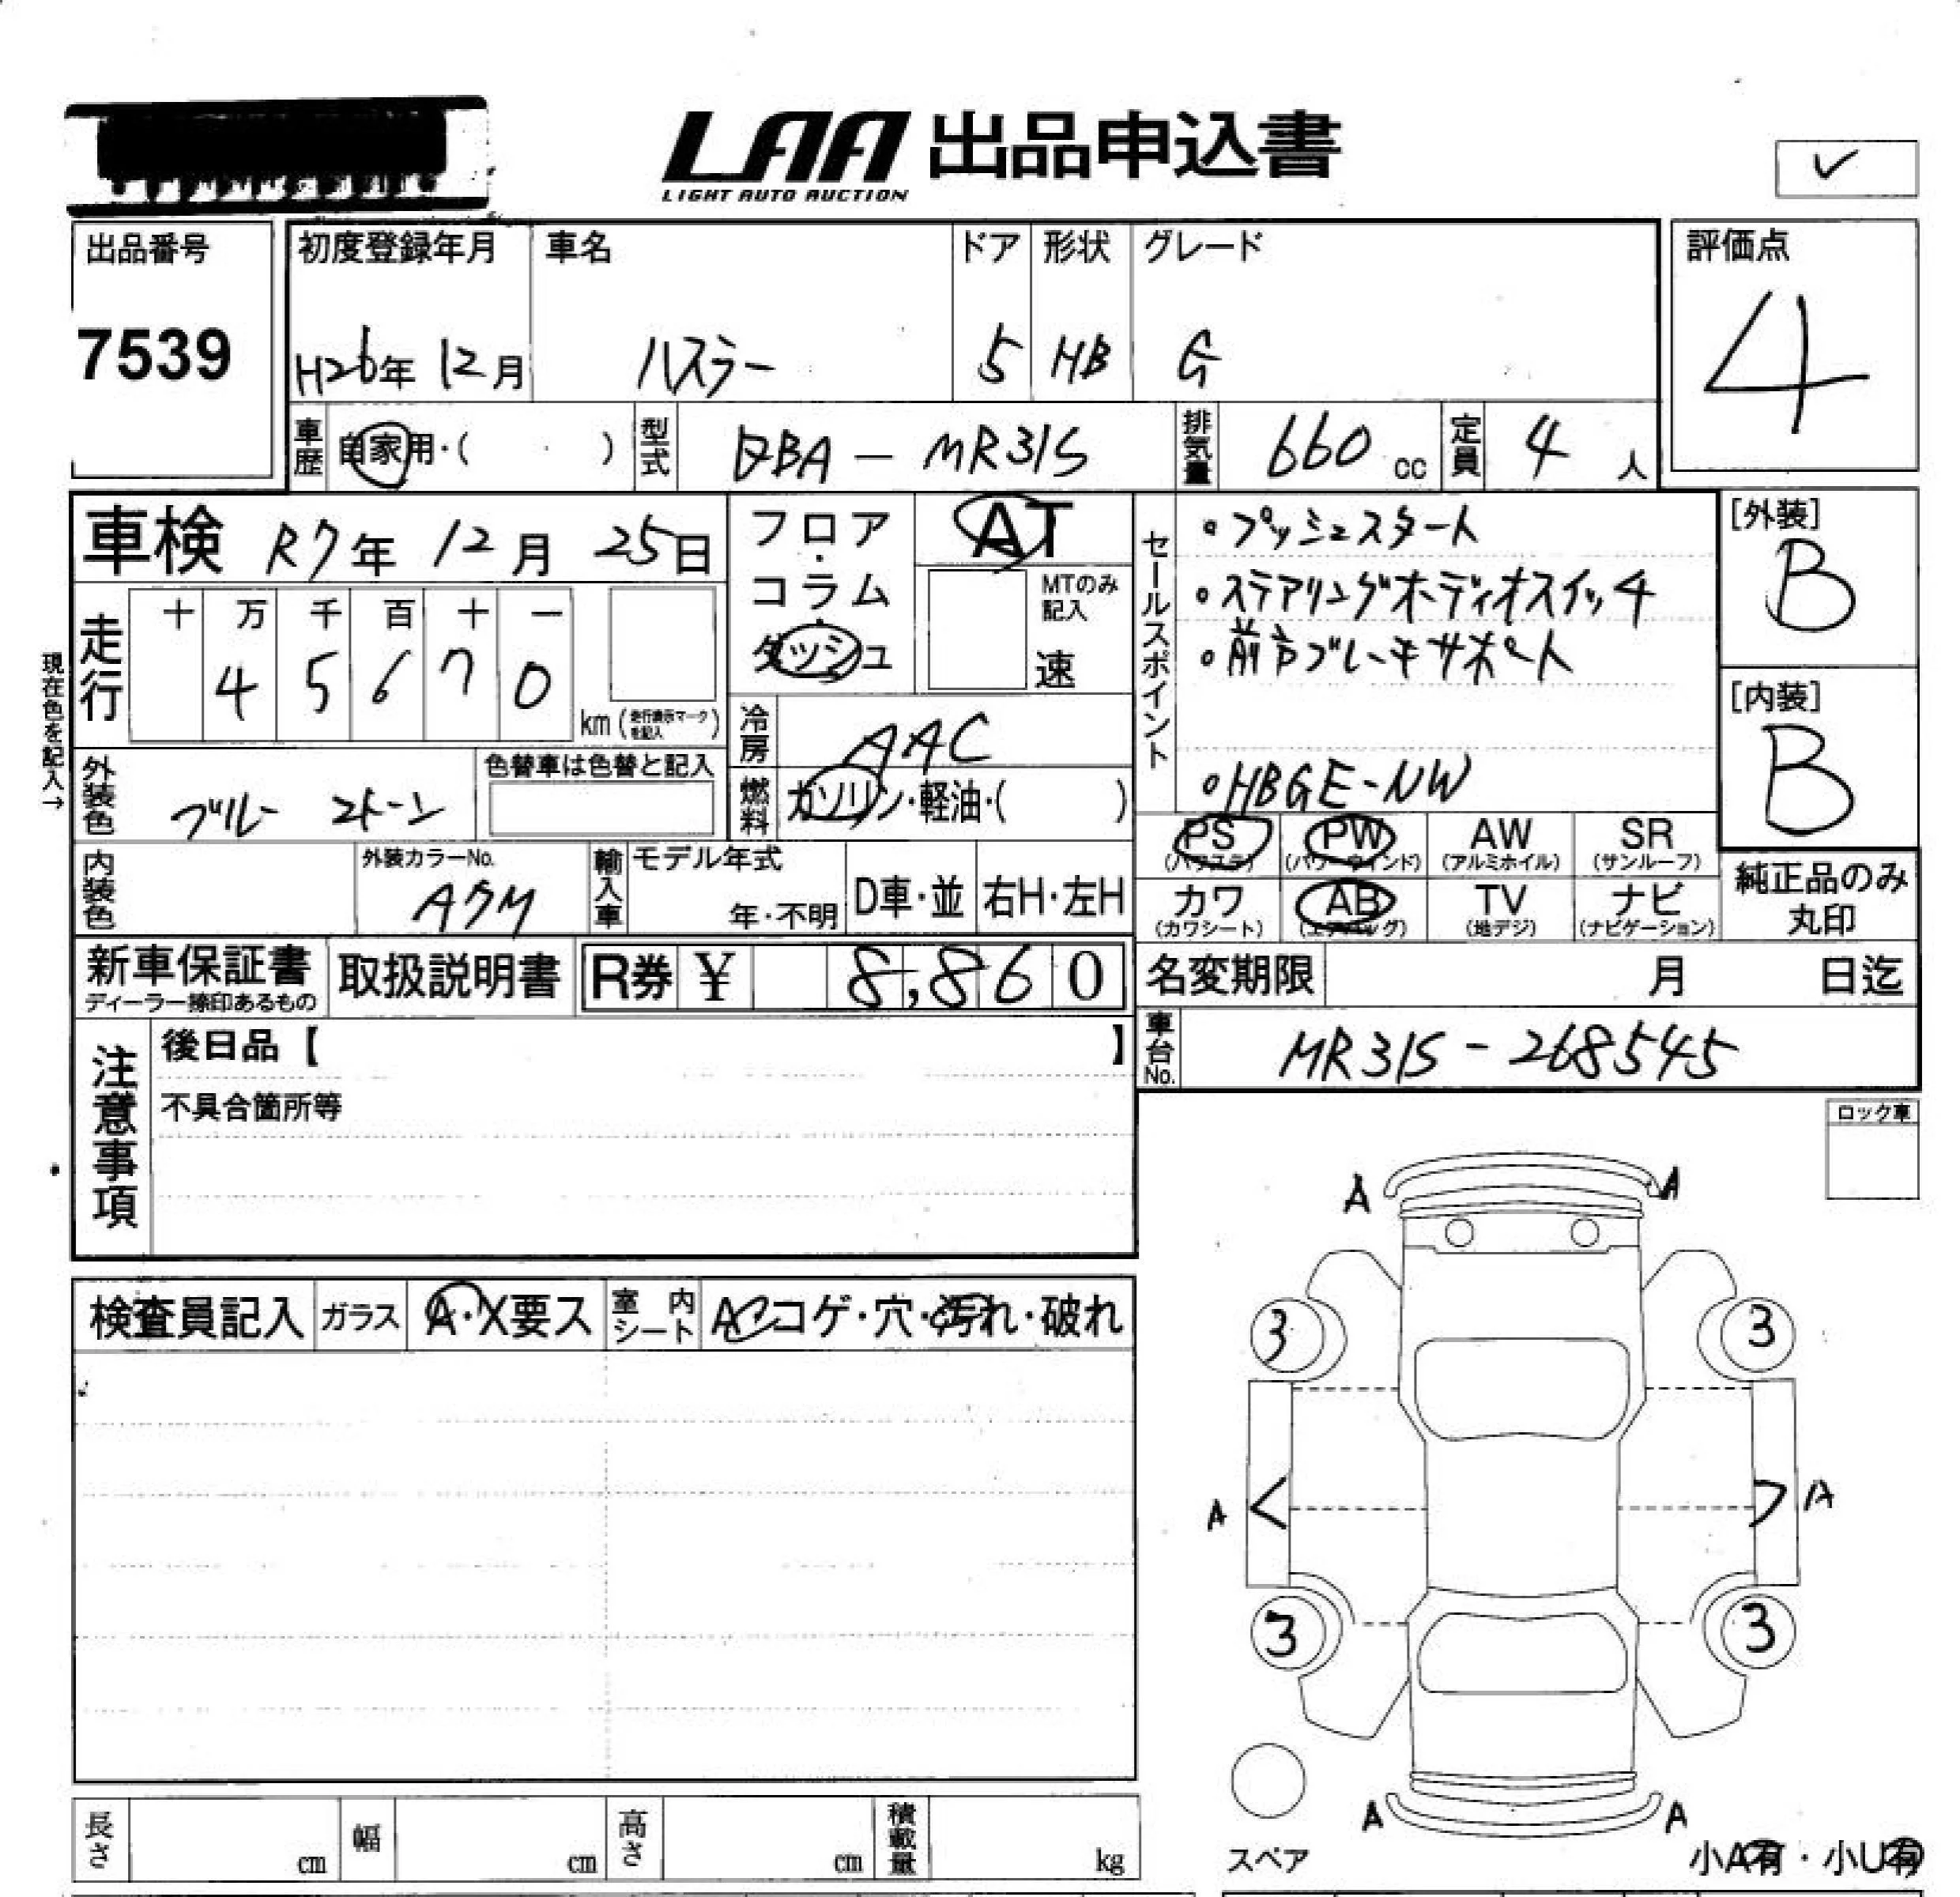 LAA 出品申込書
LIGHT AUTO AUCTION
✓
出品番号
7539
初度登録年月 車名 ドア 形状 グレード
H26年 12月 ハスラー 5 HB G
評価点
4
車歴 自家用・( ・ ) 型式 DBA - MR31S 排気量 660 cc 定員 4 人
車検 R7年 12月 25日
フロア・コラム・ダッシュ
AT
MTのみ記入
速
セールスポイント
・プッシュスタート
・ステアリングオーディオスイッチ
・前方ブレーキサポート
・HBGE-NW
[外装]
B
[内装]
B
現在色を記入→
走行 十 万 千 百 十 一
4 5 6 7 0
km (走行表示マークを記入)
冷房 AAC
外装色 ブルー 2トーン
色替車は色替と記入
燃料 ガソリン・軽油・( )
PS (パワステ) PW (パワーウインド) AW (アルミホイル) SR (サンルーフ)
カワ (カワシート) AB (エアバッグ) TV (地デジ) ナビ (ナビゲーション)
純正品のみ丸印
内装色
外装カラーNo.
輸入車 モデル年式
年・不明 D車・並 右H・左H
新車保証書
ディーラー捺印あるもの
取扱説明書
R券 ¥ 8,860
名変期限 月 日迄
車台No. MR31S - 268545
注意事項
後日品【 】
不具合箇所等
ロック車
A A
検査員記入 ガラス A・X要ス 室内シート A・コゲ・穴・汚れ・破れ
3 3
A < > A
3 3
A A
スペア
小A有・小U有
長さ cm 幅 cm 高さ cm 積載量 kg